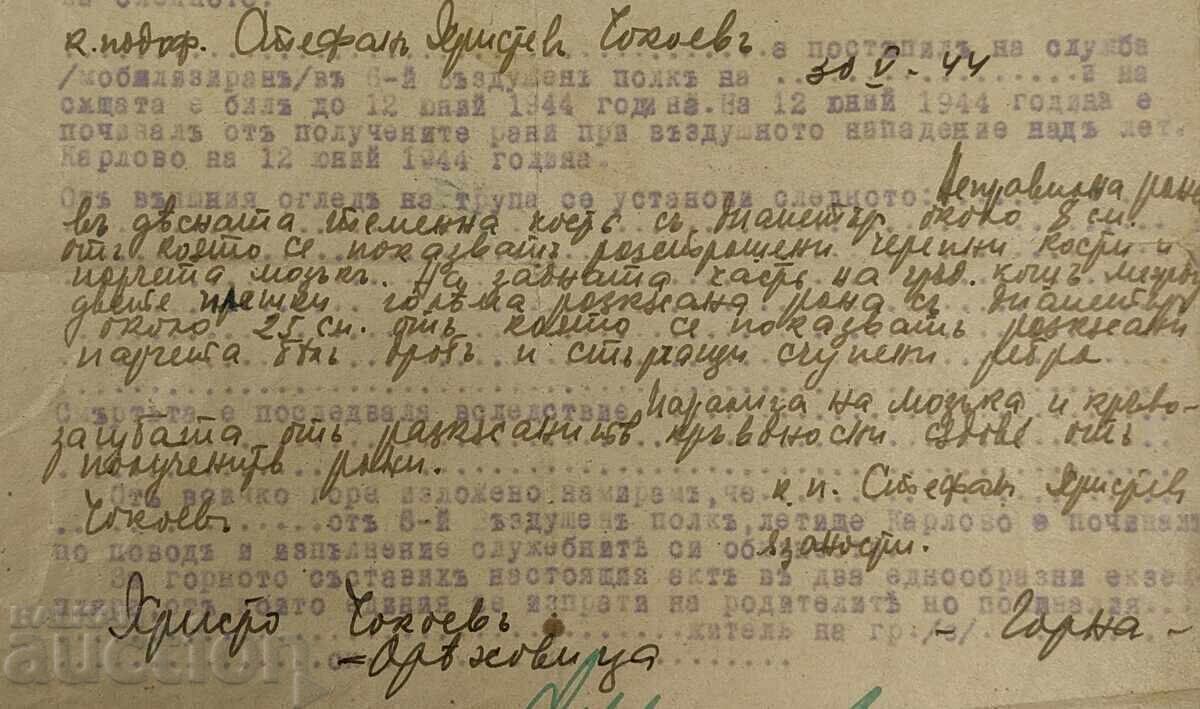 на следното:
к. подоф. Стефанъ Христовъ Чокоевъ е постѫпилъ на служба
/мобилизиранъ/въ 6-й въздушенъ полкъ на 30 V. 44 и на
сѫщата е билъ до 12 юний 1944 година. На 12 юний 1944 година е
починалъ отъ получените рани при въздушното нападение надъ лет.
Карлово на 12 юний 1944 година.
Отъ външния огледъ на трупа се установи следното: Неправилна рана
въ дѣсната теменна кость съ диаметър около 8 см.
отъ която се показватъ разтрошени черепни кости и
парчета мозъкъ. На задната часть на гръд. кошъ между
двете плешки голѣма разкѫсана рана съ диаметър
около 25 см. отъ която се показватъ разкѫсани
парчета бѣлъ дробъ и стърчащи счупени ребра
Смъртьта е последвала вследствие Парализа на мозъка и крьво-
загубата отъ разкѫсанитѣ кръвоносни сѫдове отъ
полученитѣ рани.
Отъ всичко горе изложено намирамъ, че к. п. Стефанъ Христовъ
Чокоевъ отъ 6-й въздушенъ полкъ, летище Карлово е починалъ
по поводъ и изпълнение служебнитѣ си обязаности.
За горното съставихъ настоящия актъ въ два еднообразни екзем
пляра отъ които единия се изпрати на родителитѣ но починалия
Христо Чокоевъ жител на гр./с/. - Горна -
- Орѣховица
auction